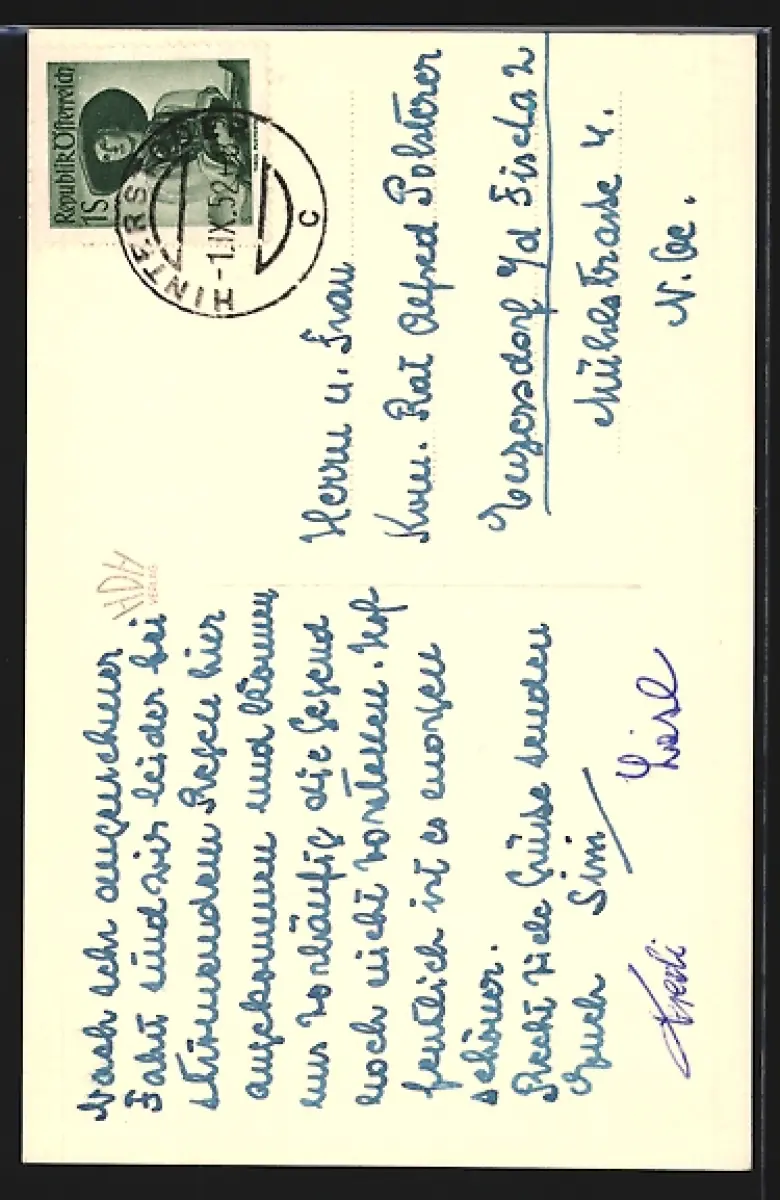 Nach sehr angenehmer
Fahrt sind wir leider bei
strömendem Regen hier
angekommen und können
uns vorläufig die Gegend
noch nicht vorstellen. Hof
fentlich ist es morgen
schöner.
Recht viele Grüsse senden
Euch Simi
Liesl
HDH
VERLAG
Republik Österreich
1S
HINTERS
-1.IX.52
C
Herrn u. Frau
Kom. Rat Alfred Polsterer
Enzersdorf a/d Fischa 2
Mühlstrasse 4.
N.Oe.